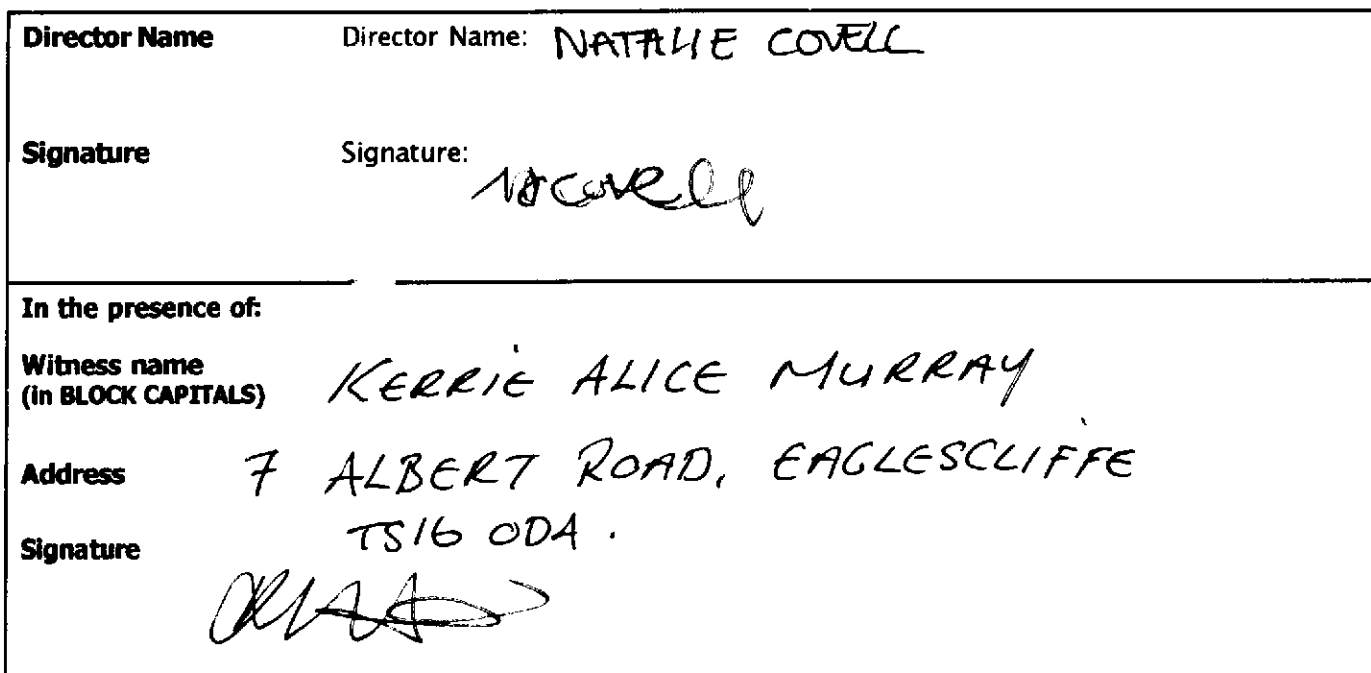 Director Name Director Name: NATALIE COVELL
Signature Signature:
NACovell
In the presence of:
Witness name
(in BLOCK CAPITALS) KERRIE ALICE MURRAY
Address 7 ALBERT ROAD, EAGLESCLIFFE
TS16 0DA.
Signature